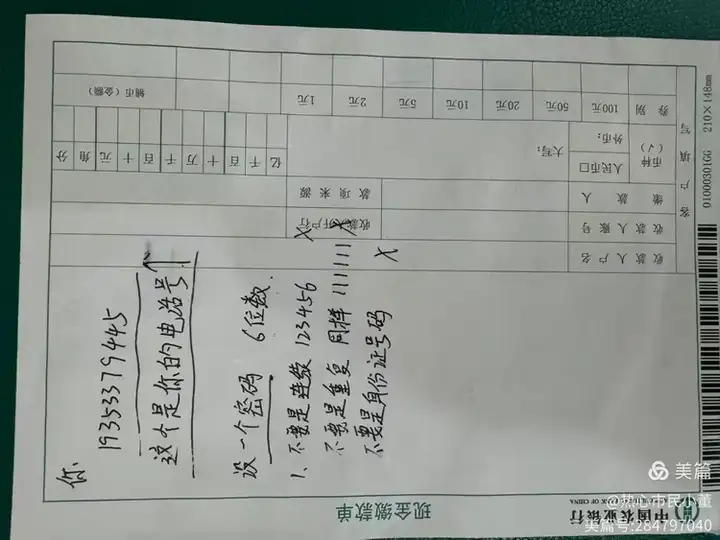 你
19353379445
这个是你的电话号
设一个密码 6位数.
1、不要是连续 123456 X
不要是重复 同样 111111 X
不要是身份证号码 X
中国农业银行
现金缴款单
客户填写
收款人户名
收款人账号
收款开户行
缴款人
款项来源
币种(√)
人民币□
外币:
大写:
亿 千 百 十 万 千 百 十 元 角 分
券别 100元 50元 20元 10元 5元 2元 1元 辅币(金额)
01000301GG 210×148mm
美篇
@热心市民小董
美篇号:284797040